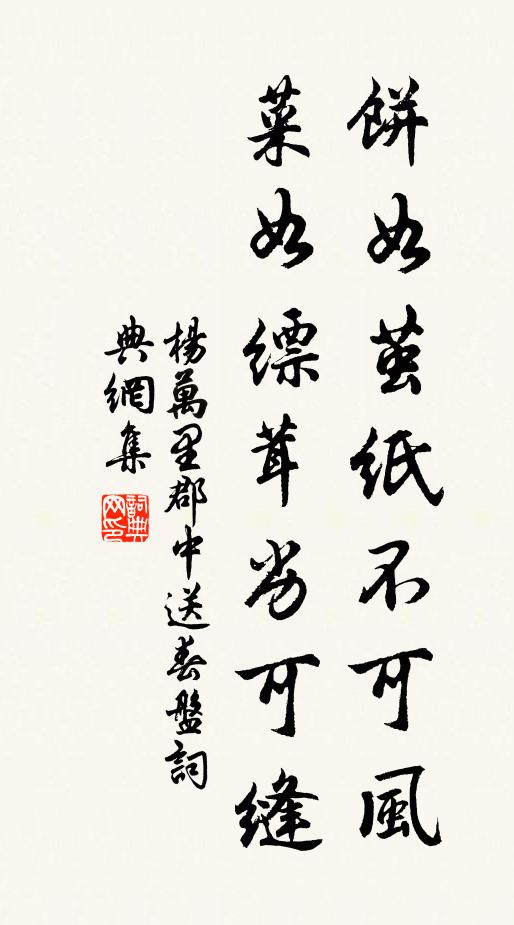 餅如茧紙不可風
菜如縹茸劣可縫
楊萬里郡中送春盤詞
典網集
詞典网印